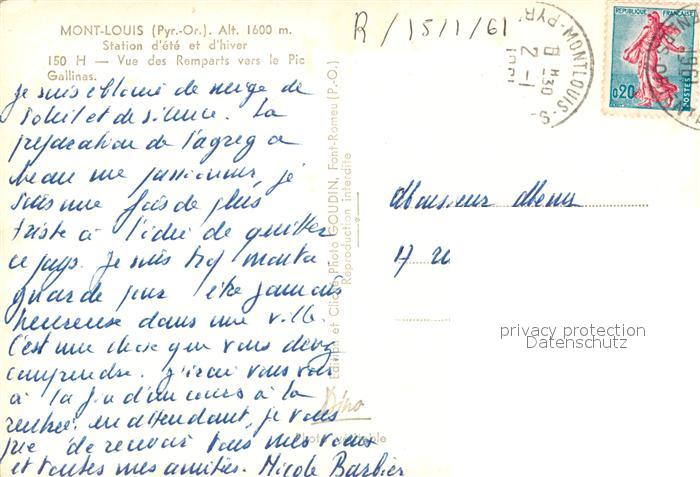 MONT-LOUIS (Pyr.-Or.). Alt. 1600 m.
Station d'été et d'hiver
150 H — Vue des Remparts vers le Pic
Gallinas.
je suis éblouie de neige de
soleil et de silence. La
préparation de l'agreg a
beau me passionner, je
suis une fois de plus
triste à l'idée de quitter
ce pays. Je suis trop monta
gnarde pour être jamais
heureuse dans une ville.
C'est une chose que vous devez
comprendre. J'irai vous voir
à la fin d'un cours à la
rentrée. en attendant, je vous
prie de recevoir tous mes vœux
et toutes mes amitiés. Nicole Barbier
Edition et Cliché Photo GOUDIN, Font-Romeu (P.-O.)
Reproduction interdite
Photo véritable
R/15/1/61
MONTLOUIS-S-
PYR-
2 -1
1961
REPUBLIQUE FRANÇAISE
0,20
POSTES
Monsieur
17 R
privacy protection
Datenschutz